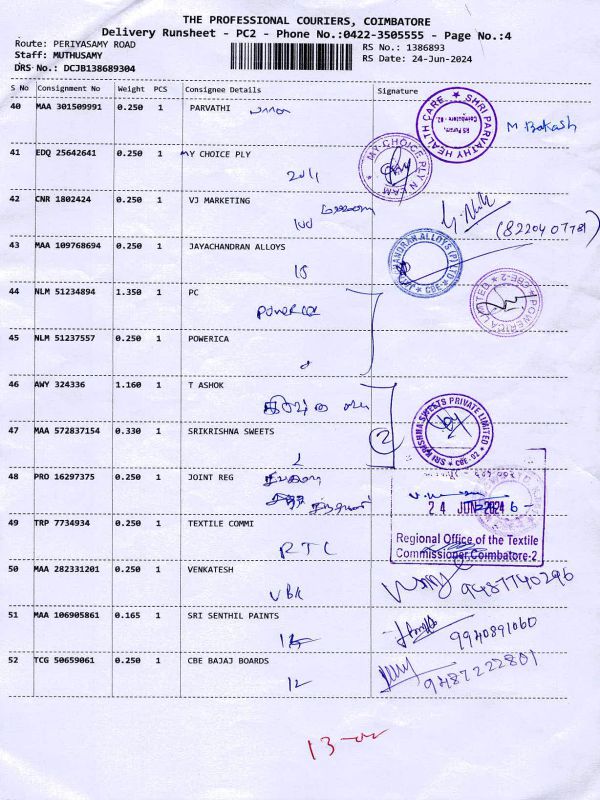 THE PROFESSIONAL COURIERS, COIMBATORE
Delivery Runsheet - PC2 - Phone No.:0422-3505555 - Page No.:4
Route: PERIYASAMY ROAD
RS No.: 1386893
Staff: MUTHUSAMY
RS Date: 24-Jun-2024
DRS No.: DCJB138689304
S No Consignment No Weight PCS Consignee Details Signature
40 MAA 301509991 0.250 1 PARVATHI
SHRI PARVATHY HEALTH CARE
M Prakash
41 EDQ 25642641 0.250 1 MY CHOICE PLY
MY-CHOICE PLY N LAM
42 CNR 1802424 0.250 1 VJ MARKETING
43 MAA 109768694 0.250 1 JAYACHANDRAN ALLOYS
44 NLM 51234894 1.350 1 PC
Powerica
POWERICA LIMITED CBE-2
45 NLM 51237557 0.250 1 POWERICA
46 AWY 324336 1.160 1 T ASHOK
2
SRI KRISHNA SWEETS PRIVATE LIMITED CBE-02
47 MAA 572837154 0.330 1 SRIKRISHNA SWEETS
48 PRO 16297375 0.250 1 JOINT REG
24 JUN 2024
49 TRP 7734934 0.250 1 TEXTILE COMMI
RTC
Regional Office of the Textile
Commissioner, Coimbatore-2
50 MAA 282331201 0.250 1 VENKATESH
VBK
9487740296
51 MAA 106905861 0.165 1 SRI SENTHIL PAINTS
9940891060
52 TCG 50659061 0.250 1 CBE BAJAJ BOARDS
9487222801